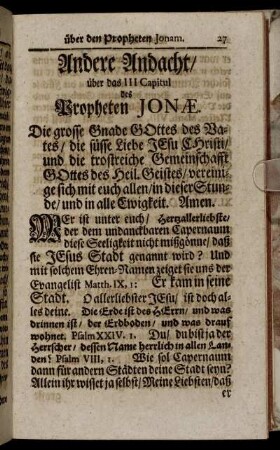 über den Propheten Jonam. 27
Andere Andacht/
über das III Capitul
des
Propheten JONÆ.
Die grosse Gnade GOttes des Va-
ters/ die süsse Liebe JEsu CHristi/
und die trostreiche Gemeinschafft
GOttes des Heil. Geistes/ vereini-
ge sich mit euch allen/ in dieser Stun-
de/ und in alle Ewigkeit. Amen.
WEr ist unter euch/ Hertzallerliebste/
der dem undanckbaren Capernaum
diese Seeligkeit nicht mißgönne/ daß
sie JEsus Stadt genannt wird? Und
mit solchem Ehren-Namen zeiget sie uns der
Evangelist Matth. IX, 1: Er kam in seine
Stadt. O allerliebster JEsu/ ist doch al-
les deine. Die Erde ist des HErrn/ und was
drinnen ist/ der Erdboden/ und was drauf
wohnet. Psalm XXIV. 1. Du/ du bist ja der
Herrscher/ dessen Name herrlich in allen Lan-
den! Psalm VIII, 1. Wie sol Capernaum
dann für andern Städten deine Stadt seyn?
Allein ihr wisset ja selbst/ Meine Liebsten/ daß
er